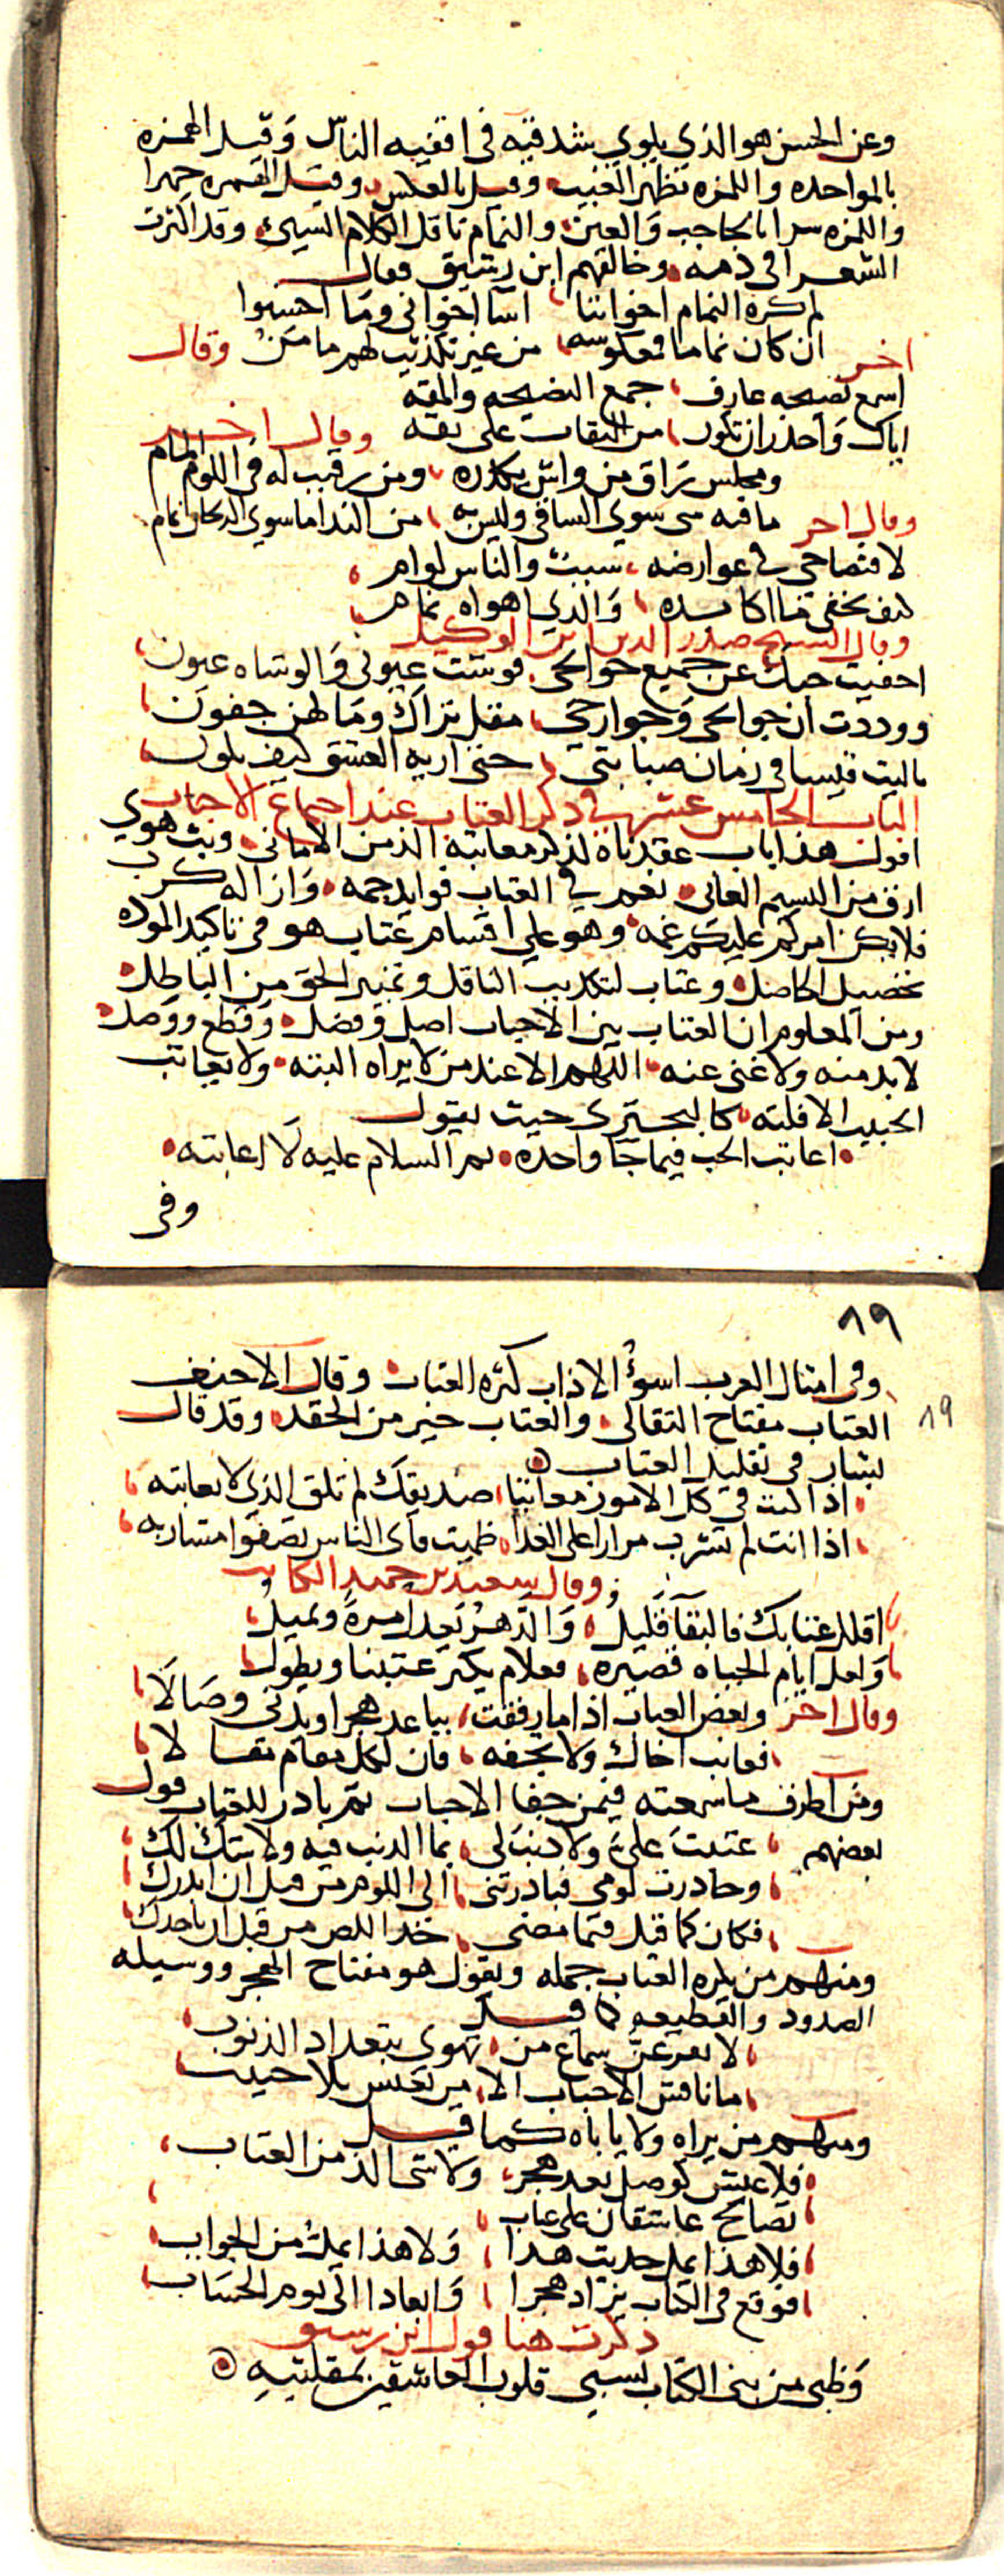 وعن الحسن هو الذي يلوي بشدقيه في اقفيه الناس وقيل الهمزه
بالمواحده واللمزه بظهر الغيب وقيل بالعكس وقيل الهمزه جهرا
واللمزه سرا بالحاجب والعين والنمام ناقل الكلام السيئ وقد اكثرت
الشعرا في ذمه وخالفهم ابن رشيق فقال
لم كره النمام اخواننا اسا اخواني وما احسنوا
ان كان نماما فمعكوسه من غير تكذيب لهم مامن وقال
اخر
اسمع نصيحه عارف جمع النصيحه والمقه
اياك واحذر ان تكون من الثقات على ثقه وقال اخر
ومجلس راق من واش يكدره ومن رقيب له في اللوم المام
ما فيه سوي الساقي وليس به من الندا ما سوي الريحان نمام
وقال اخر
لافتضاحي في عوارضه سبب والناس لوام
كيف يخفي ما اكابده والذي اهواه نمام
وقال الشيخ صدر الدين ابن الوكيل
اخفيت حبك عن جميع جوانحي فوشت عيوني والوشاه عيون
ووددت ان جوانحي وجوارحي مقل تراك وما لهن جفون
ياليت قيسا في زمان صبابتي حتى اريه العشق كيف يكون
الباب الخامس عشر في ذكر العتاب عند اجماع الاحباب
اقول هذا باب عقدناه لذكر معاتبه الذ من الاماني وبث هوي
ارق من النسيم العاني نعم في العتاب فوايد جمه وازاله كرب
فلا يكن امركم عليكم غمه وهو علي اقسام عتاب هو في تاكيد الموده
تحصيل الحاصل وعتاب لتكذيب الناقل وتمييز الحق من الباطل
ومن المعلوم ان العتاب بين الاحباب اصل وفضل وقطع ووصل
لابد منه ولا غني عنه اللهم الا عند من لا يراه البته ولا يعاتب
الحبيب الا فلته كالبحتري حيث يقول
اعاتب الحب فيما جا واحده ثم السلام عليه لا اعاتبه
وفي
١٩
وفي امثال العرب اسوأ الاداب كثره العتاب وقال الاحنف
العتاب مفتاح التقالي والعتاب خير من الحقد وقد قال
١٩
بشار في تقليل العتاب
اذا كنت في كل الامور معاتبا صديقك لم تلق الذي لا تعاتبه
اذا انت لم تشرب مرارا على القذا ظميت واي الناس تصفوا مشاربه
وقال سعيد بن حميد الكاتب
اقلل عتابك فالبقا قليل والدهر يعدل مرة ويميل
ولعل ايام الحياه قصيره فعلام يكثر عتبنا ويطول
وقال اخر وبعض العتاب اذا ما رفقت يباعد هجرا ويدني وصالا
فعاتب اخاك ولا تجفه فان لكل مقام مقالا
ومن اظرف ما سمعته فيمن جفا الاحباب ثم بادر للعتاب قول
بعضهم عتبت علي ولا ذنب لي بما الذنب فيه ولا شك لك
وحاذرت لومي فبادرتني الي اللوم من قبل ان ابدرك
فكان كما قيل فيما مضي خذ اللص من قبل ان ياخذك
ومنهم من يكره العتاب جمله ويقول هو مفتاح الهجر ووسيله
الصدود والقطيعه كما قيل
لا تقرعن سماع من تهوي بتعداد الذنوب
ما ناقش الاحباب الا من يعيش بلا حبيب
ومنهم من يراه ولا ياباه كما قيل
فلا عيش كوصل بعد هجر ولا شي الذ من العتاب
تصالح عاشقان على عتاب
فلا هذا يمل حديث هذا ولا هذا يمل من الجواب
فوقع في الكتاب يزاد هجرا وابعادا الي يوم الحساب
ذكرت هنا قول ابن رشيق
وظبي من بني الكتاب يسبي قلوب العاشقين بمقلتيه